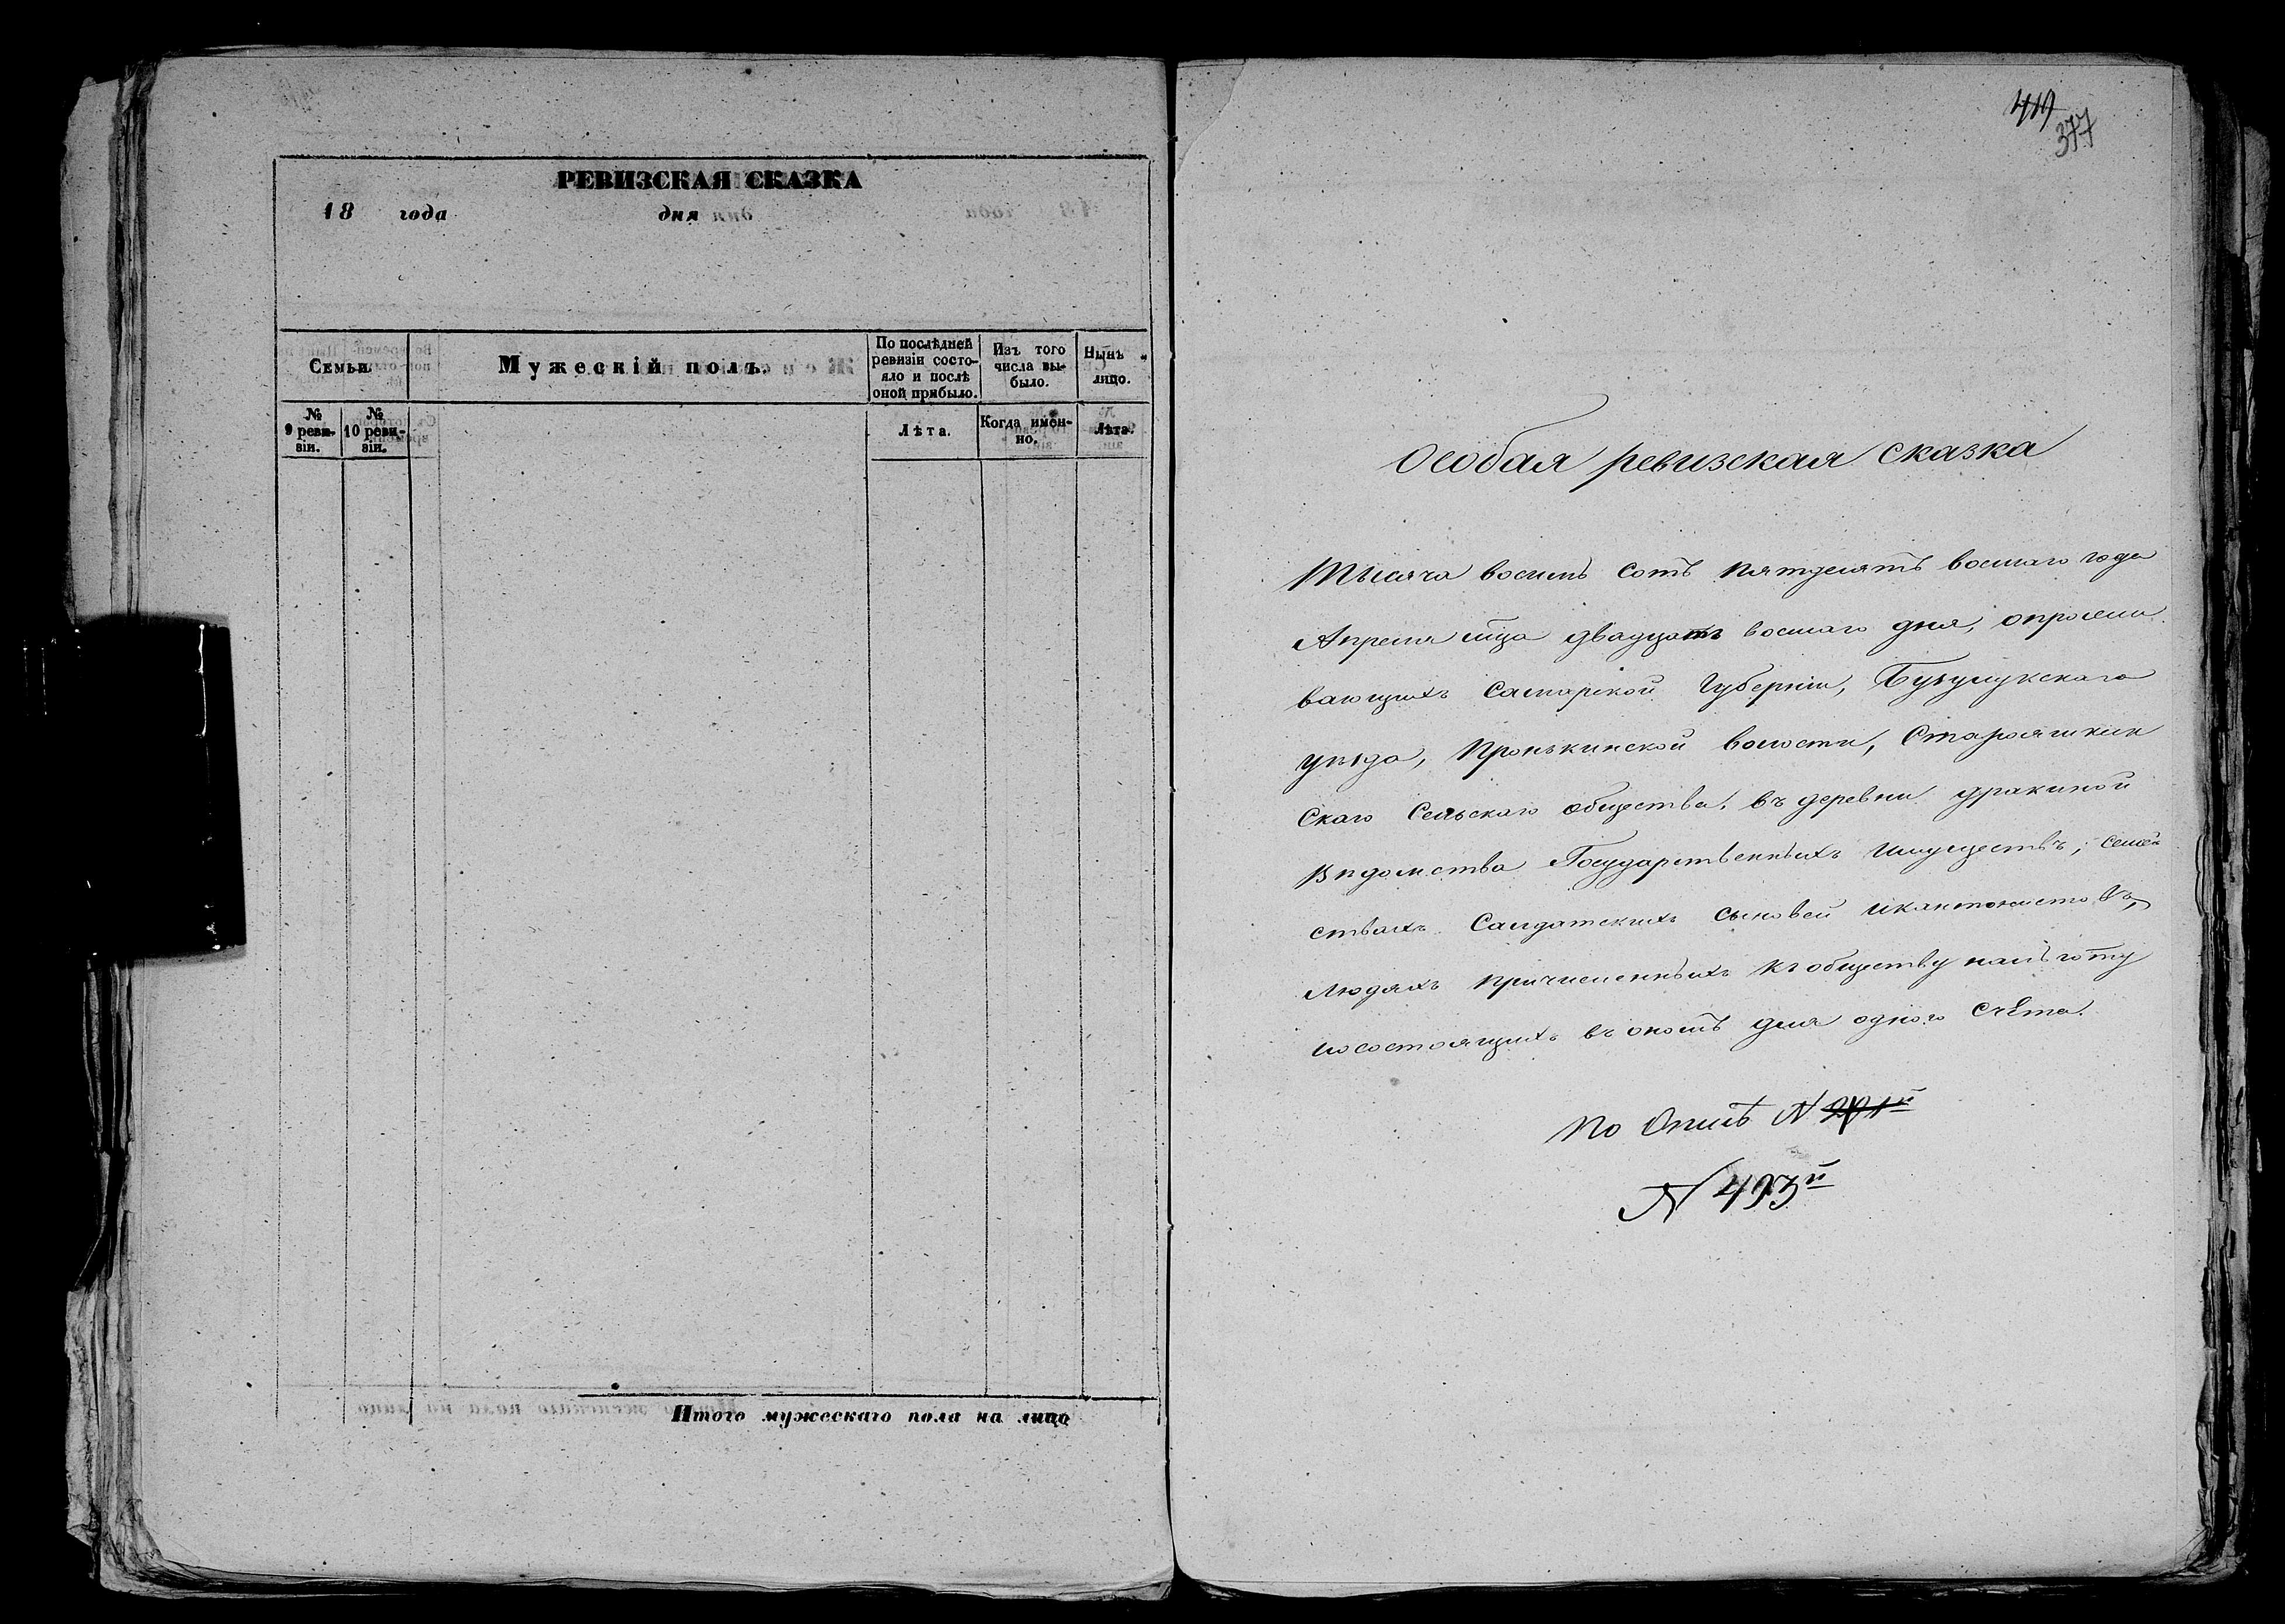 РЕВИЗСКАЯ СКАЗКА
18 года дня
Семьи.
Мужескій полъ.
По послѣдней ревизіи состо-
яло и послѣ
оной прибыло.
Изъ того
числа вы-
было.
Нынѣ
лицо.
№
9 реви-
зіи.
№
10 реви-
зіи.
Лѣта.
Когда имен-
но.
Лѣта.
Итого мужескаго пола на лицо
419
377
Особая ревизская сказка
Тысяча восемь сотъ пятдесятъ восмаго года
Апреля мца двадцать восмаго дня, о прожи
вающихъ Самарской Губерніи, Бузулукскаго
уѣзда, Пронькинской волости, Старояшкин
скаго Сельскаго общества. въ деревни дракиной
Вѣдомства Государственныхъ имуществъ, семей
ствахъ Салдатскихъ сыновей и кантонистовъ,
людяхъ причисленныхъ къ обществу на льготу
и состоящихъ въ ономъ для одного счёта.
По Описѣ N
N 493й